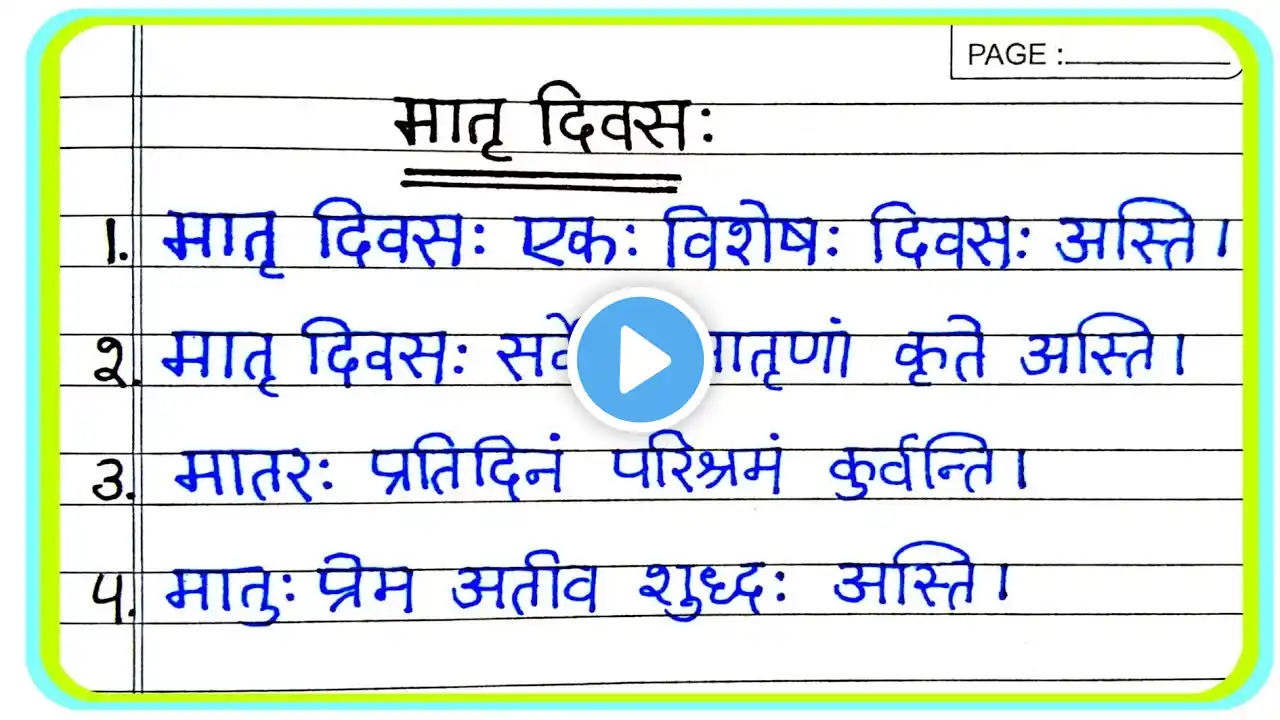 PAGE :
मातृ दिवसः
1. मातृ दिवसः एकः विशेषः दिवसः अस्ति।
२. मातृ दिवसः कृते अस्ति।
३. मातरः प्रतिदिनं परिश्रमं कुर्वन्ति।
४. मातुः प्रेम अतीव शुध्दः अस्ति।